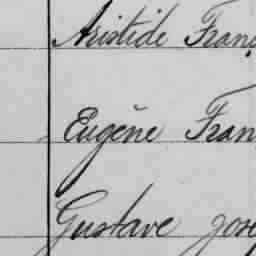 Aristide Franç
Eugène Fran
Gustave Jose